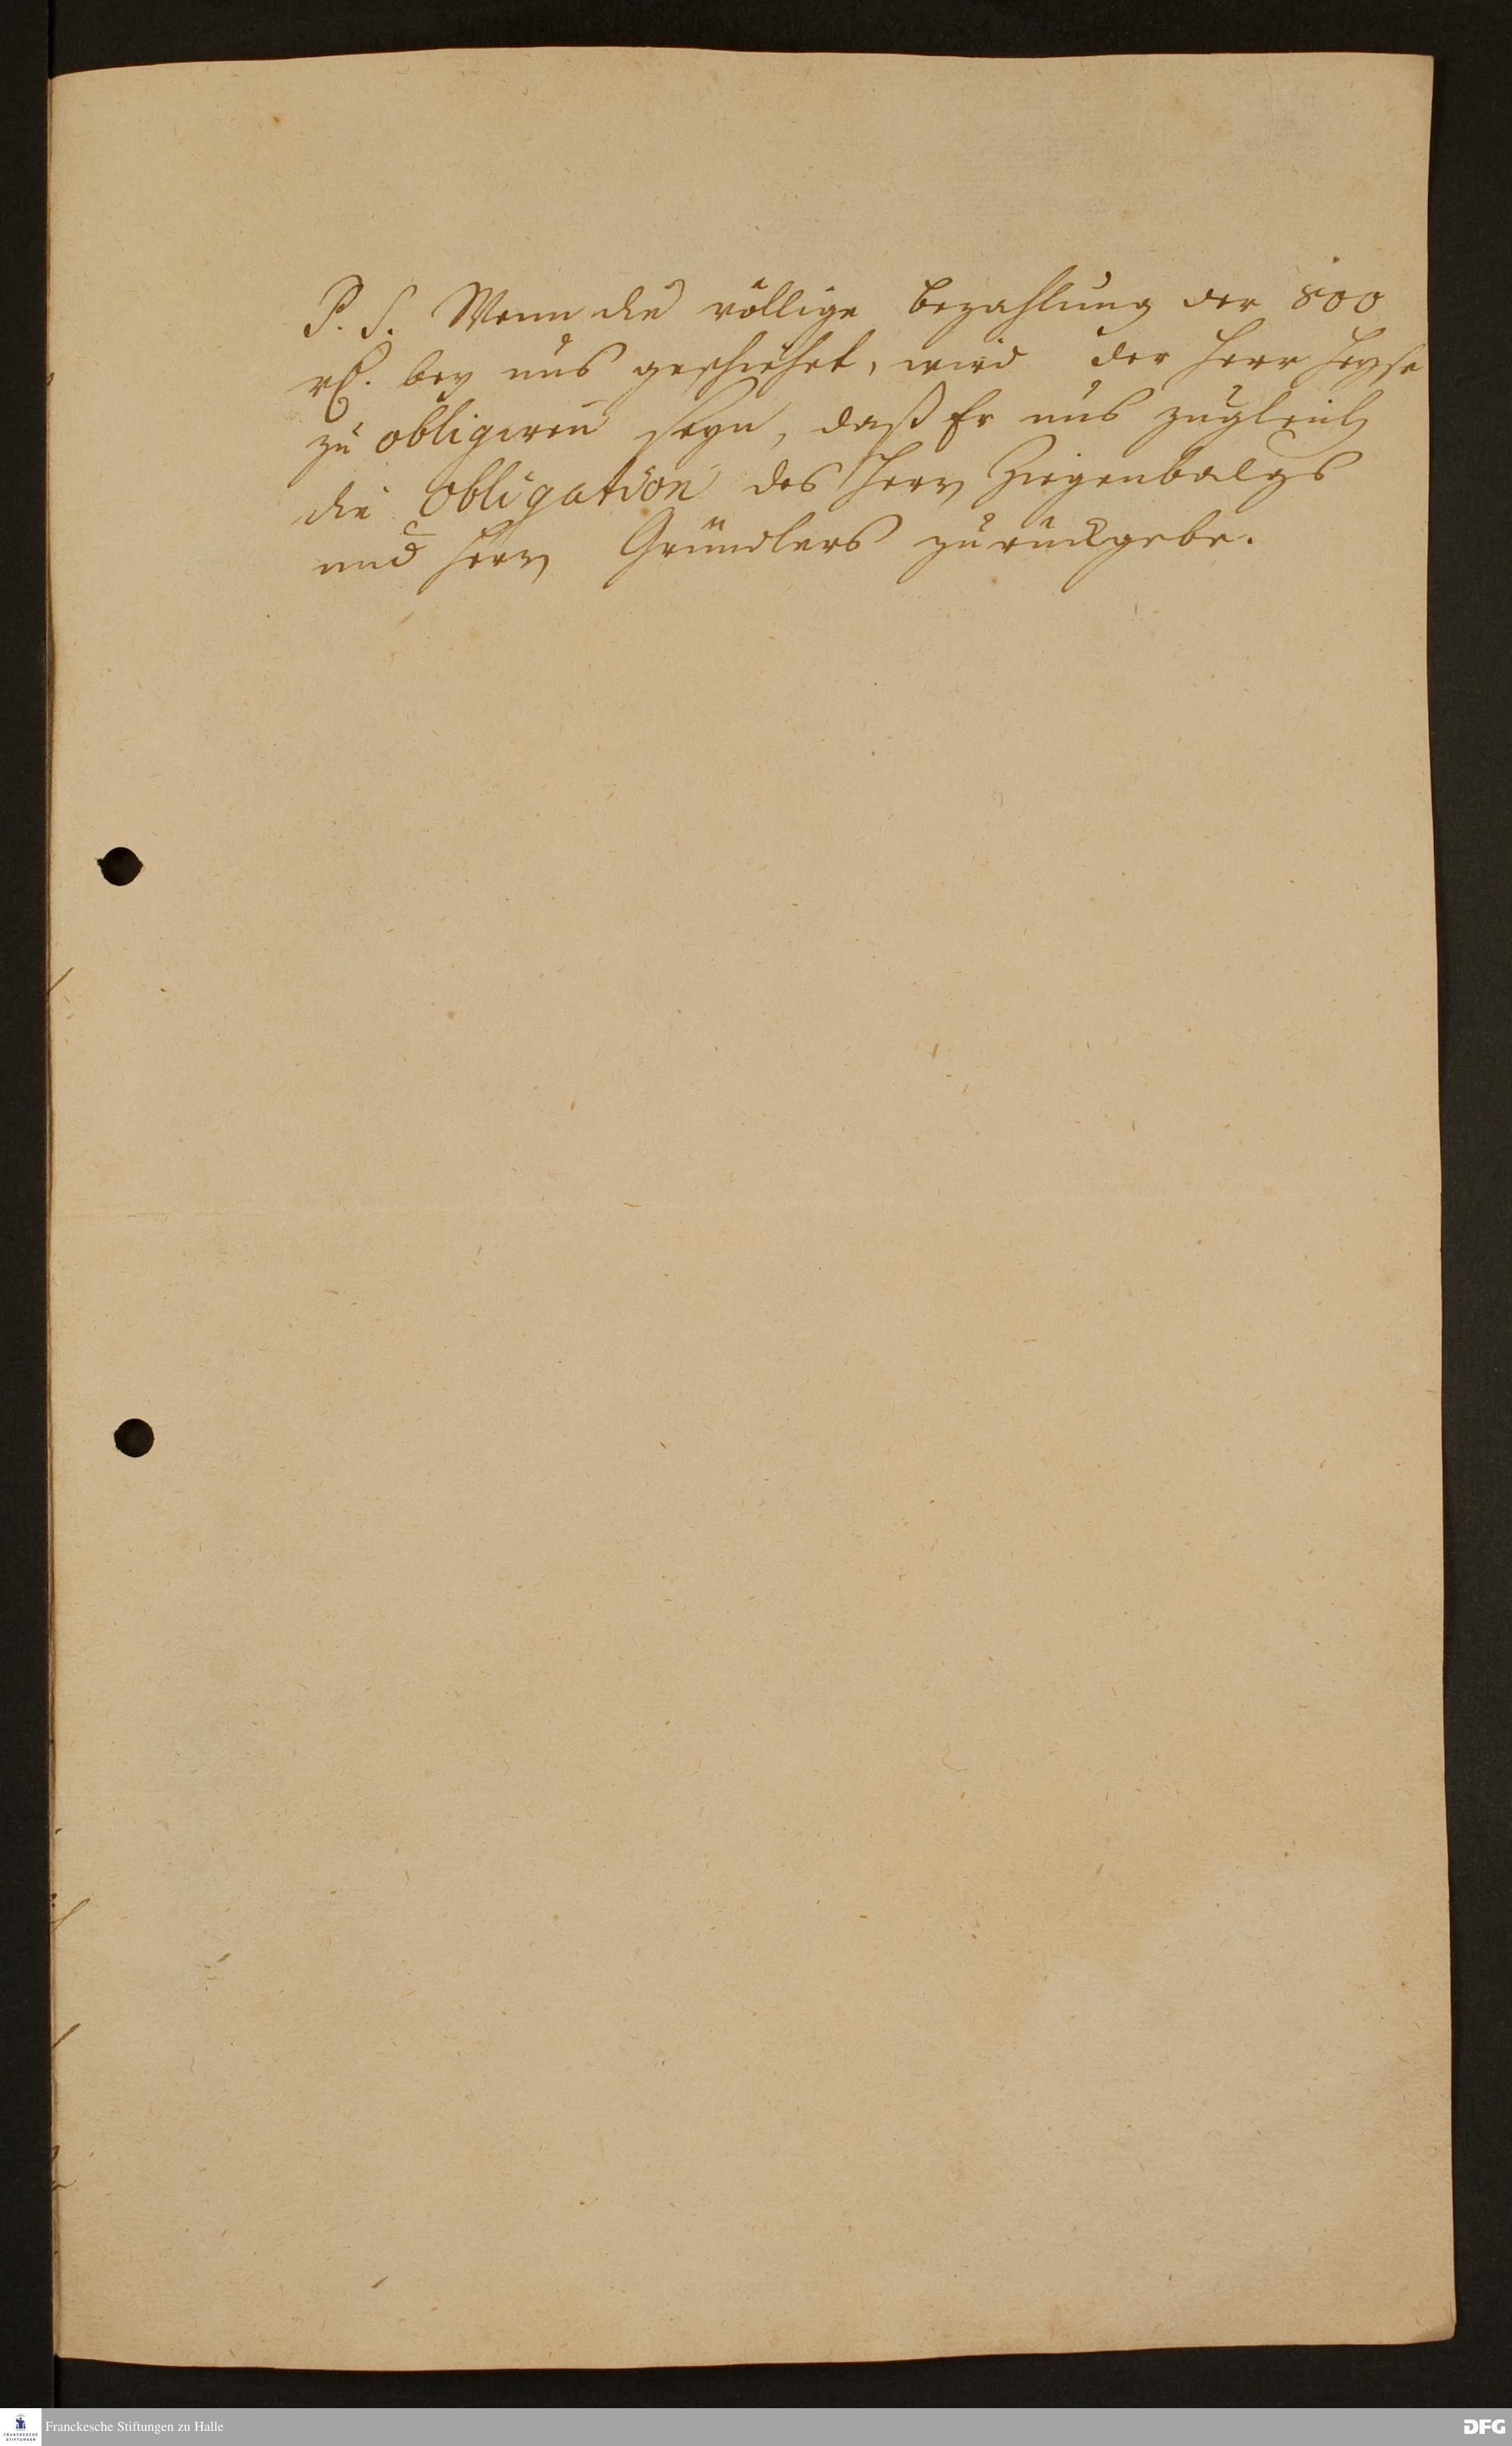 P. S. Wenn die völlige bezahlung der 800
rl. bey uns geschiehet, wird der Herr Heyse
zu obligiren seyn, daß Er uns zugleich
die Obligation des Herrn Ziegenbalgs
und Herrn Gründlers zurückgebe.
FRANCKESCHE
STIFTUNGEN
Franckesche Stiftungen zu Halle
DFG